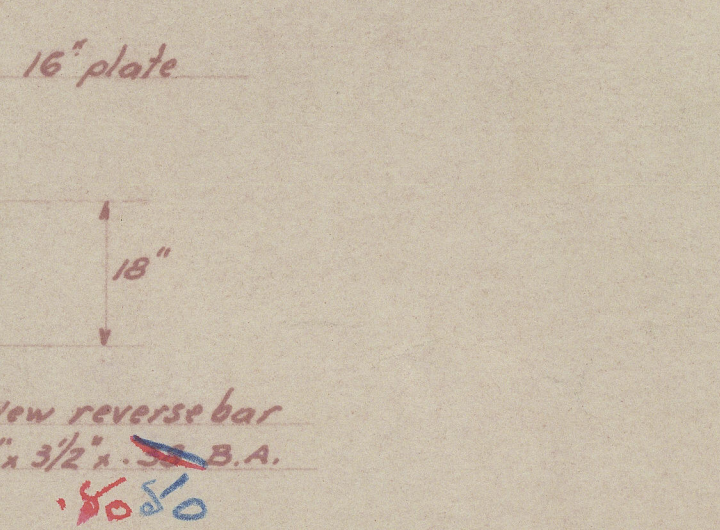 16" plate
18"
new reverse bar
" x 3 1/2" x . B.A.
.50 50